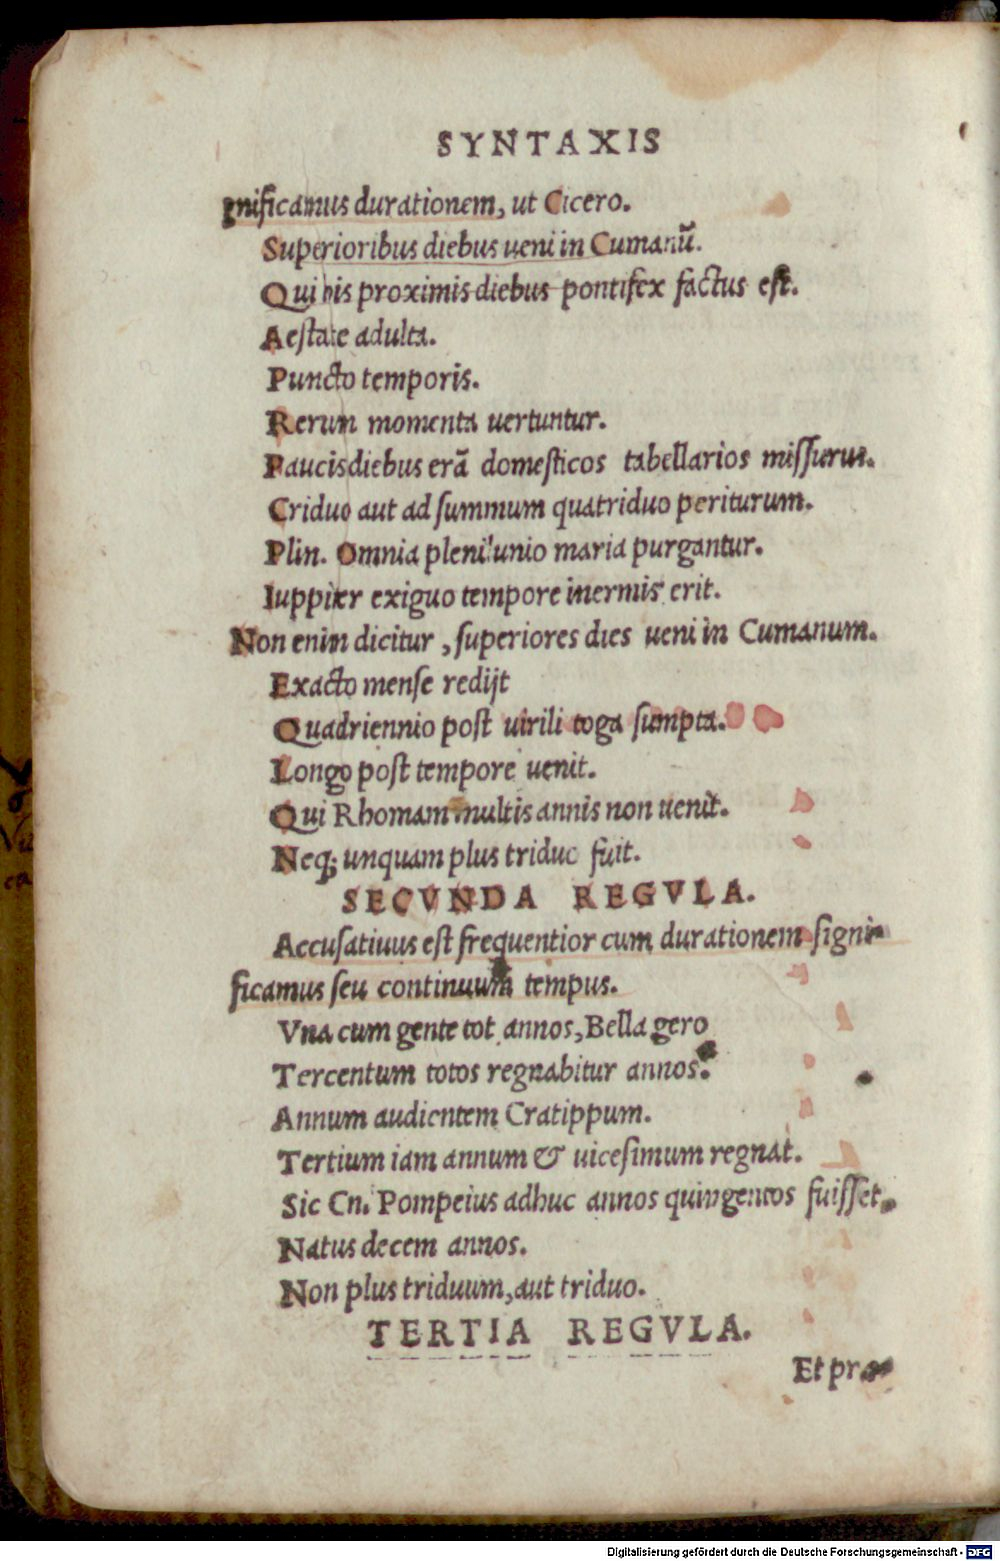 SYNTAXIS
gnificamus durationem, ut Cicero.
Superioribus diebus ueni in Cumanū.
Qui his proximis diebus pontifex factus est.
Aestate adulta.
Puncto temporis.
Rerum momenta uertuntur.
Paucis diebus erā domesticos tabellarios missurus.
Criduo aut ad summum quatriduo periturum.
Plin. Omnia plenilunio maria purgantur.
Iuppiter exiguo tempore inermis erit.
Non enim dicitur, superiores dies ueni in Cumanum.
Exacto mense redijt
Quadriennio post uirili toga sumpta.
Longo post tempore uenit.
Qui Rhomam multis annis non uenit.
Neq; unquam plus triduo fuit.
SECVNDA REGVLA.
Accusatiuus est frequentior cum durationem signi-
ficamus seu continuum tempus.
Vna cum gente tot annos, Bella gero
Tercentum totos regnabitur annos.
Annum audientem Cratippum.
Tertium iam annum & uicesimum regnat.
Sic Cn. Pompeius adhuc annos quingentos fuisset.
Natus decem annos.
Non plus triduum, aut triduo.
TERTIA REGVLA.
Et præ-
Digitalisierung gefördert durch die Deutsche Forschungsgemeinschaft - DFG